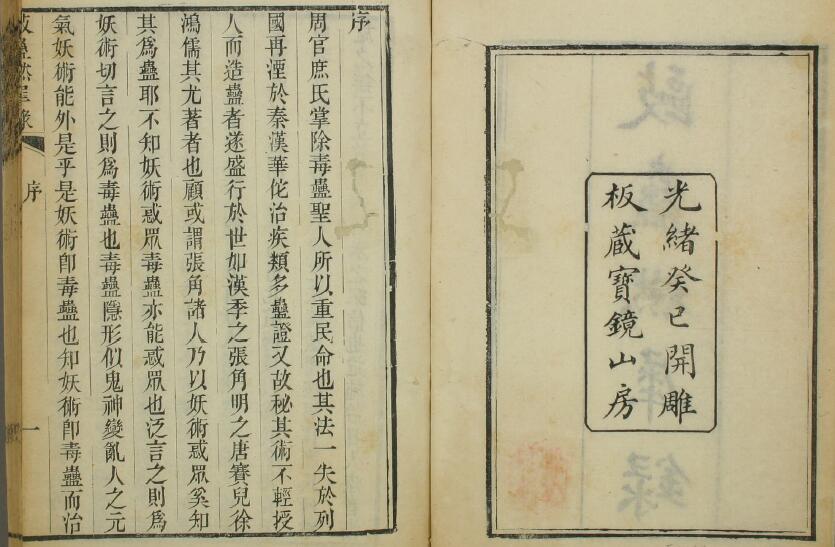 光緒癸巳開雕
板藏寶鏡山房
序
周官庶氏掌除毒蠱聖人所以重民命也其法一失於列
國再湮於秦漢華佗治疾類多蠱證又故秘其術不輕授
人而造蠱者遂盛行於世如漢季之張角明之唐賽兒徐
鴻儒其尤著者也顧或謂張角諸人乃以妖術惑眾奚知
其為蠱耶不知妖術惑眾毒蠱亦能惑眾也泛言之則為
妖術切言之則為毒蠱也毒蠱隱形似鬼神變亂人之元
氣妖術能外是乎是妖術即毒蠱也知妖術即毒蠱而治
序
一